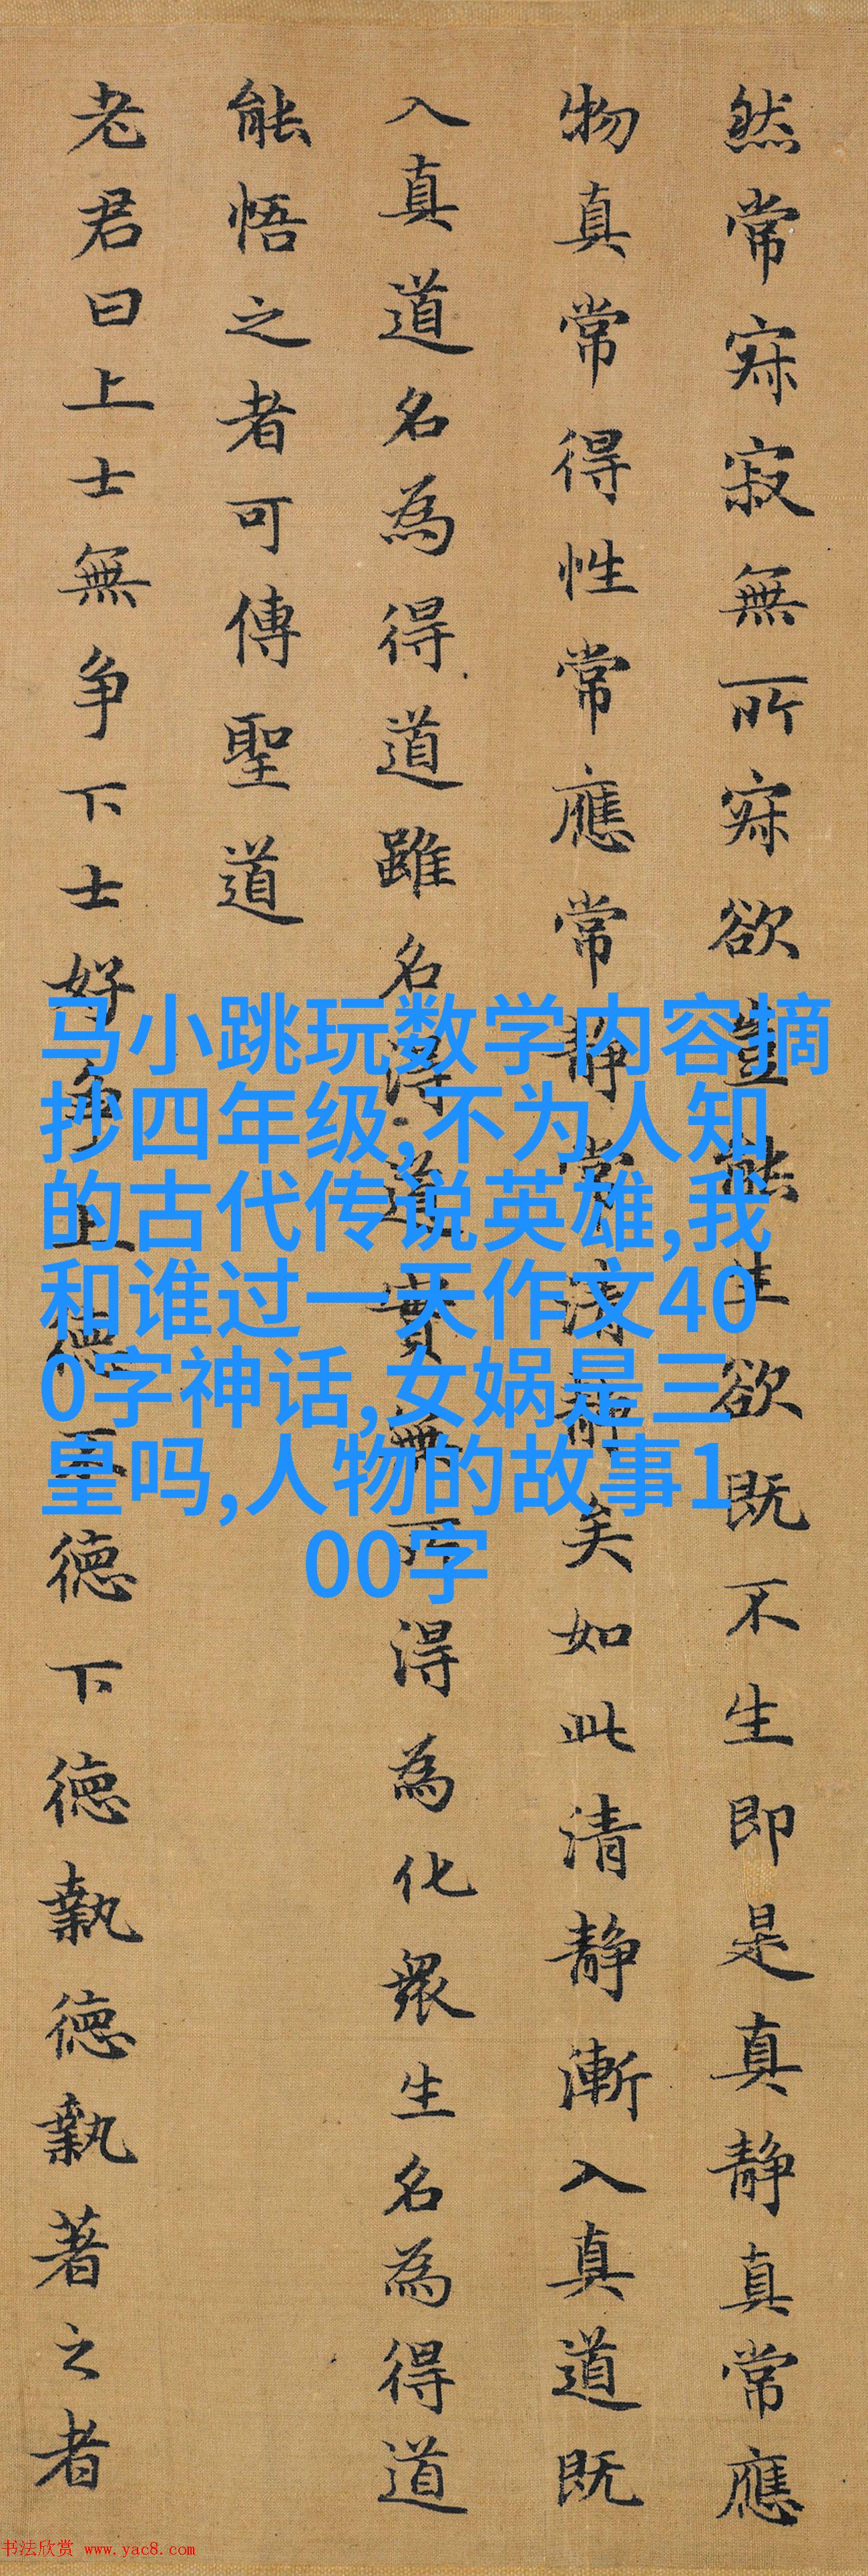 然常寂寂無所寂欲豈能生欲既不生即是真静真常應
物真常得性常應常静常清静矣如此清静漸入真道既
入真道名為得道雖名得道實無所得為化眾生名為得道
能悟之者可傳聖道
老君曰上士無争下士好争上德不德下德執德執著之者
马小跳玩数学内容摘
抄四年级,不为人知
的古代传说英雄,我
和谁过一天作文40
0字神话,女娲是三
皇吗,人物的故事1
00字
书法欣赏 www.yac8.com